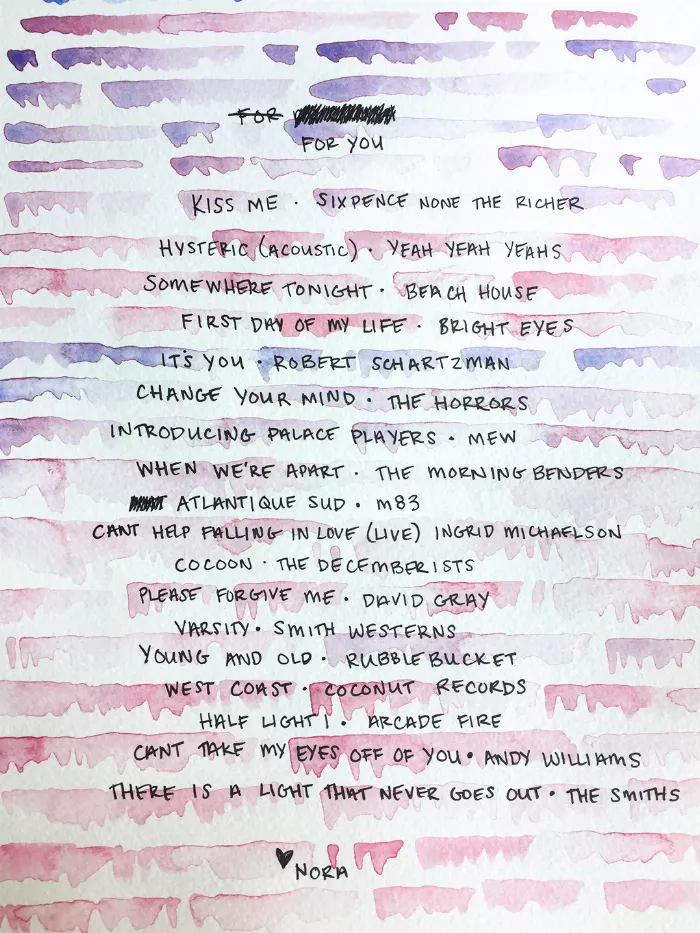 FOR
FOR YOU
KISS ME · SIXPENCE NONE THE RICHER
HYSTERIC (ACOUSTIC) · YEAH YEAH YEAHS
SOMEWHERE TONIGHT · BEACH HOUSE
FIRST DAY OF MY LIFE · BRIGHT EYES
IT'S YOU · ROBERT SCHARTZMAN
CHANGE YOUR MIND · THE HORRORS
INTRODUCING PALACE PLAYERS · MEW
WHEN WE'RE APART · THE MORNING BENDERS
ATLANTIQUE SUD · M83
CANT HELP FALLING IN LOVE (LIVE) INGRID MICHAELSON
COCOON · THE DECEMBERISTS
PLEASE FORGIVE ME · DAVID GRAY
VARSITY · SMITH WESTERNS
YOUNG AND OLD · RUBBLEBUCKET
WEST COAST · COCONUT RECORDS
HALF LIGHT I · ARCADE FIRE
CANT TAKE MY EYES OFF OF YOU · ANDY WILLIAMS
THERE IS A LIGHT THAT NEVER GOES OUT · THE SMITHS
♥ NORA